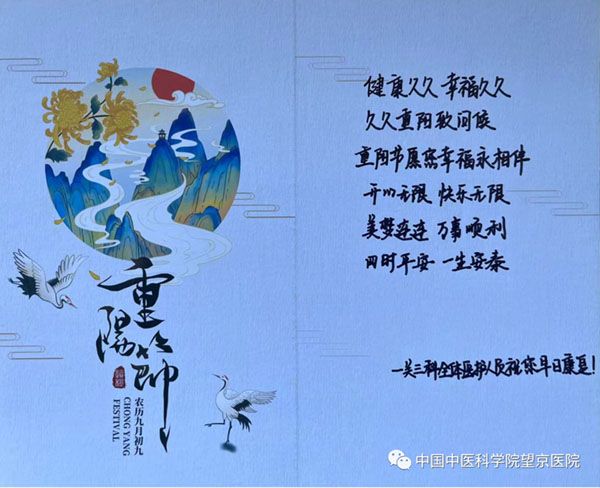 重陽節
农历九月初九
CHONG YANG
FESTIVAL
健康久久 幸福久久
久久重阳致问候
重阳节愿您幸福永相伴
开心无限 快乐无限
美梦连连 万事顺利
四时平安 一生安泰
—关三科全体医护人员祝您早日康复!
中国中医科学院望京医院